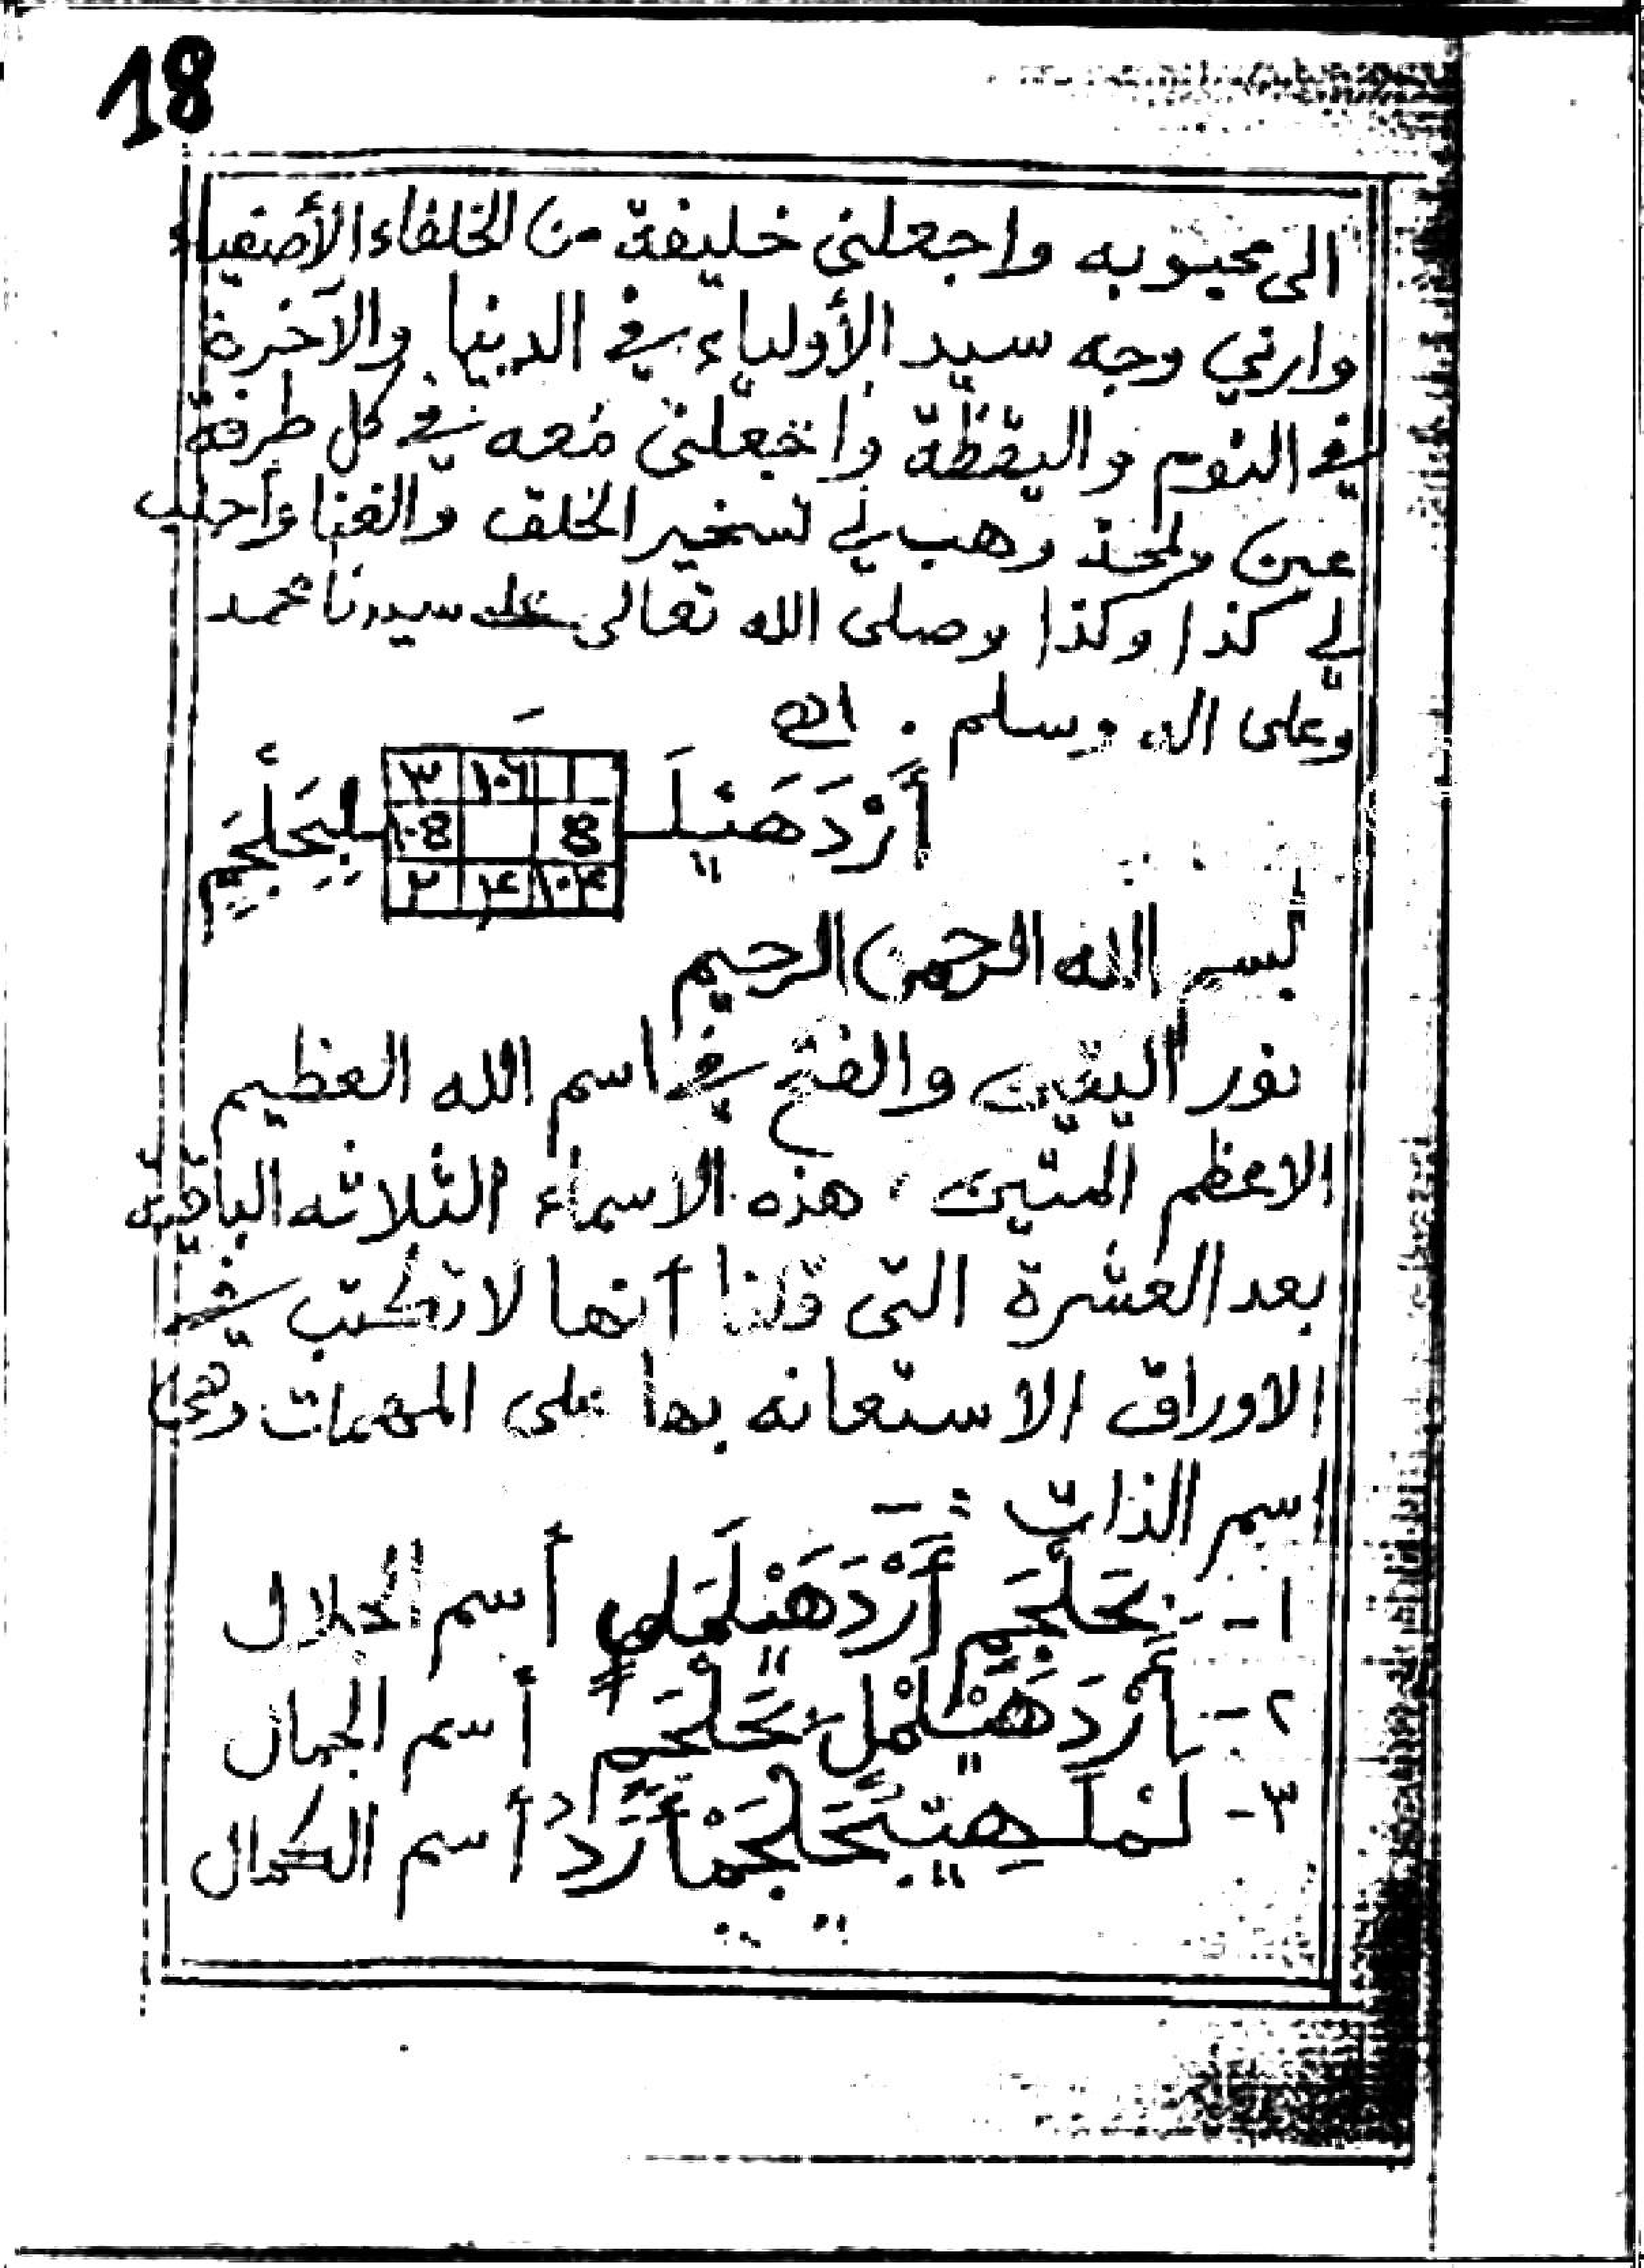 18
الى محبوبه واجعلنى خليفة من الخلفاء الأصفياء
وارني وجه سيد الأولياء في الدنيا والآخرة
في النوم واليقظة واجعلنى معه في كل طرفة
عين ولمحة وهب لي تسخير الخلق والغنا وأجلب
لي كذا وكذا وصلى الله تعالى على سيدنا محمد
وعلى اله وسلم .
٣ ١٠٦ ١
أَزْدَهَيْلَـ ١٠8 8 ـلِيَحَلْجَيِم
٢ ٤ ١٠٤
بسم الله الرحمن الرحيم
نور اليقين والفتح في اسم الله العظيم
الاعظم المتين ، هذه الاسماء الثلاثه الباقية
بعد العشرة التى قلنا أنها لا تكتب في
الاوراق الا ستعانه بها على المهمات وهى
اسم الذات : -
١ - أسم الجلال
٢ - أسم الجمال
٣ - أسم الكمال